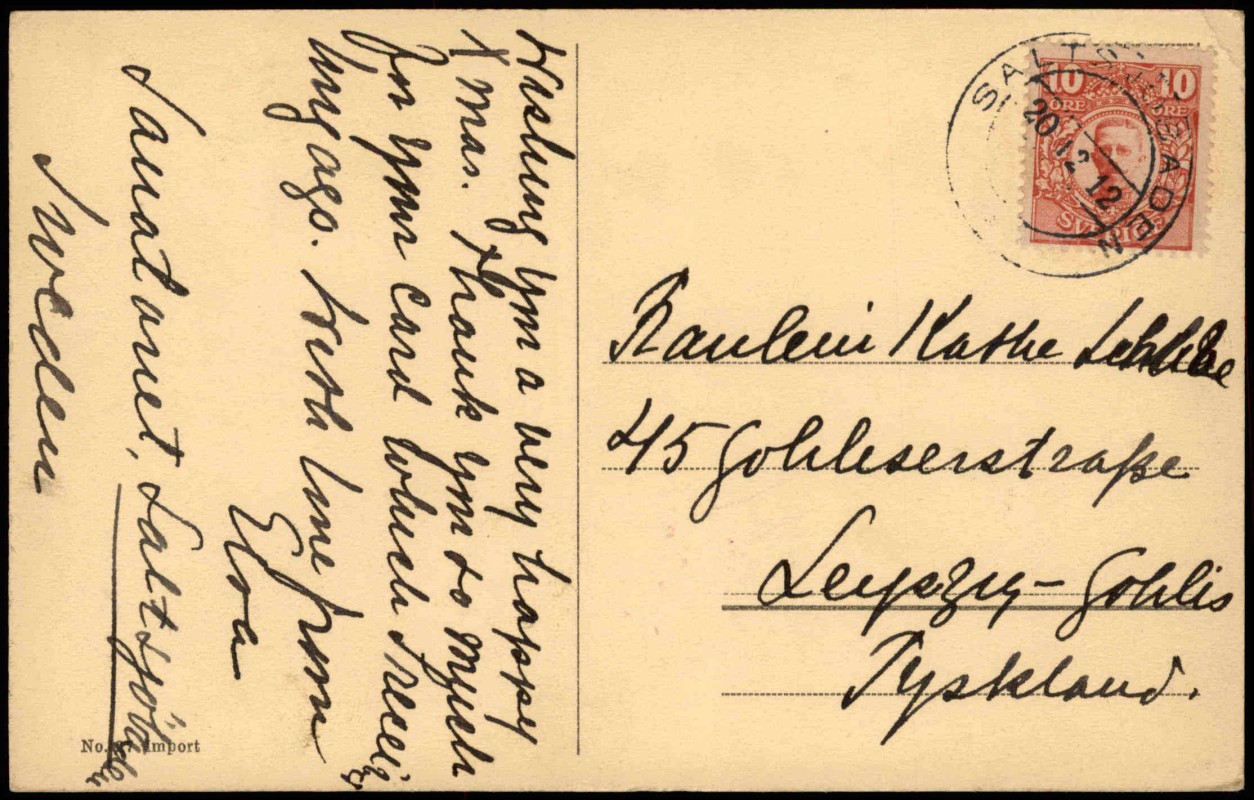 Wishing you a very happy
Xmas. Thank you so much
for your card which I recei-
ungago. With love from
Elva
Sanatoriet, Saltsjöbaden
Sweden
No. Import
SALTSJÖBADEN
20 12 12
10 10
ÖRE ÖRE
SVERIGE
Fraulein Kathe
45 Gohliserstraße
Leipzig-Gohlis
Tyskland.